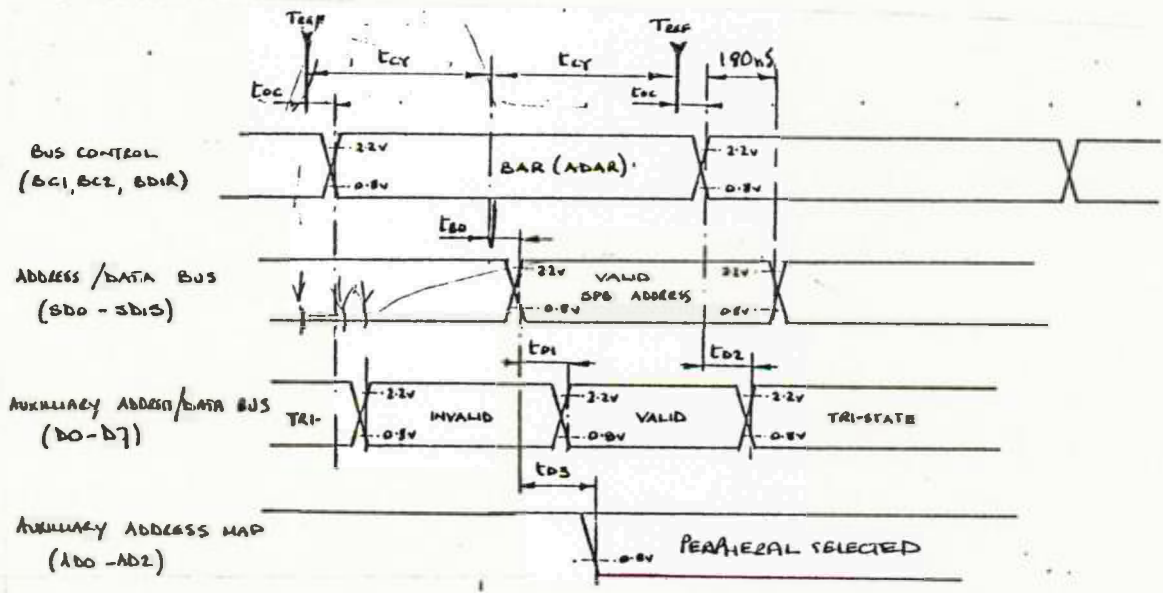 TREF
TREF
tcy
tcy
190nS
toc
toc
BUS CONTROL
(BC1, BC2, BDIR)
2.2V
0.8V
BAR (ADAR)
2.2V
0.8V
tBD
ADDRESS / DATA BUS
(SD0 - SD15)
2.2V
0.8V
VALID
SPB ADDRESS
2.2V
0.8V
tD1
tD2
AUXILIARY ADDRESS/DATA BUS
(D0-D7)
TRI-
2.2V
0.8V
INVALID
2.2V
0.8V
VALID
2.2V
0.8V
TRI-STATE
tD3
AUXILIARY ADDRESS MAP
(AD0 - AD2)
0.8V
PERIPHERAL SELECTED